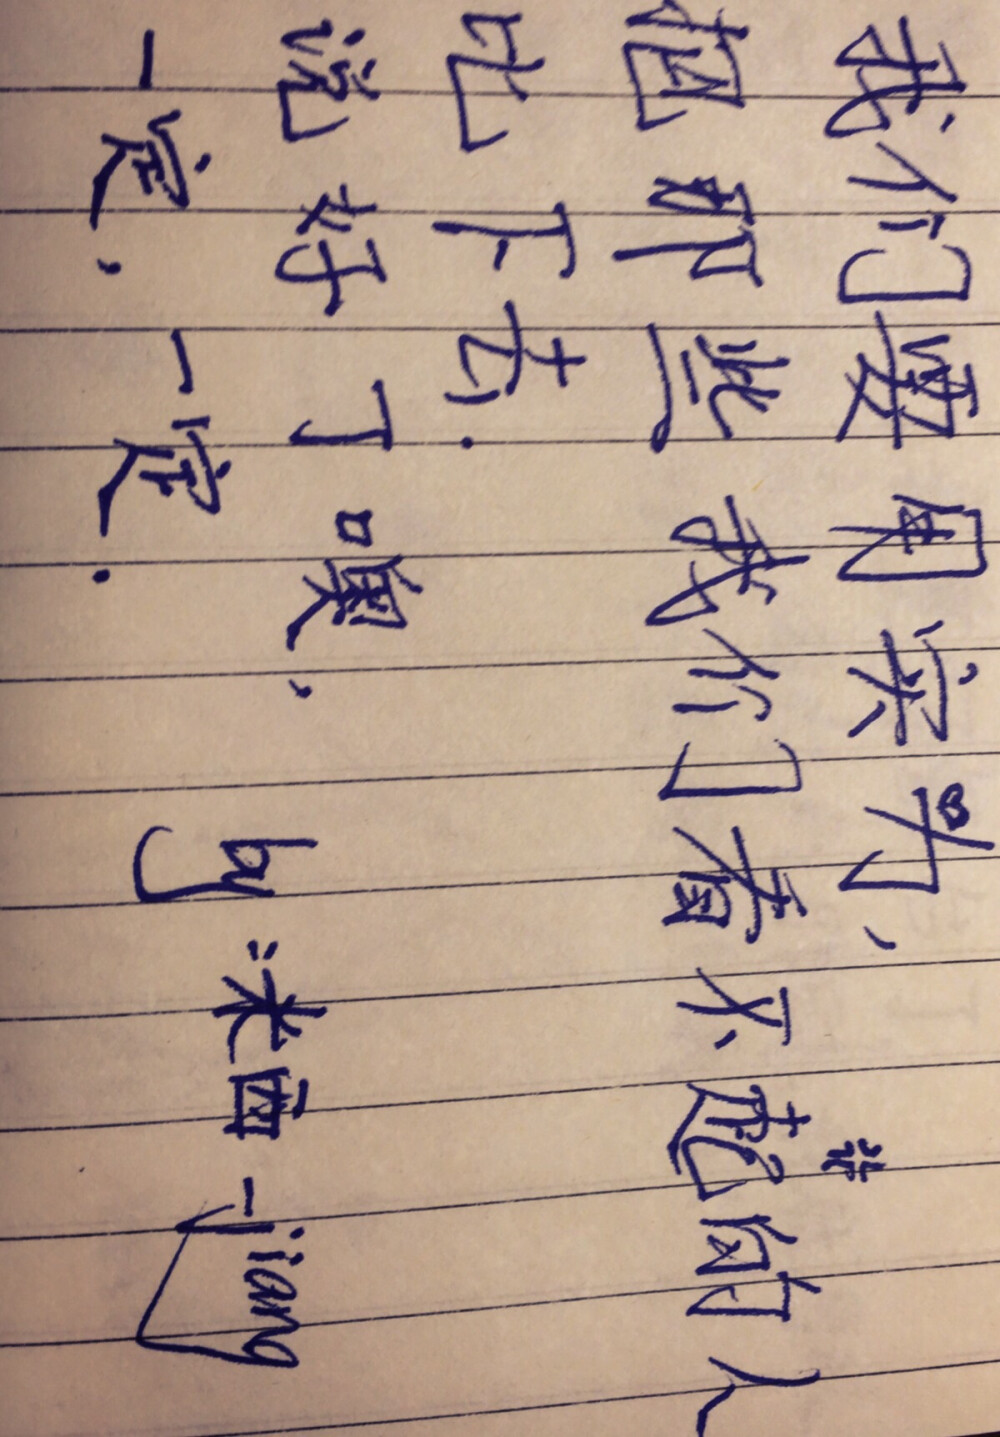 我们要用实力,
把那些我们看不起的人
比下去.
说好了噢.
一定. 一定.
by:米面-Jiang